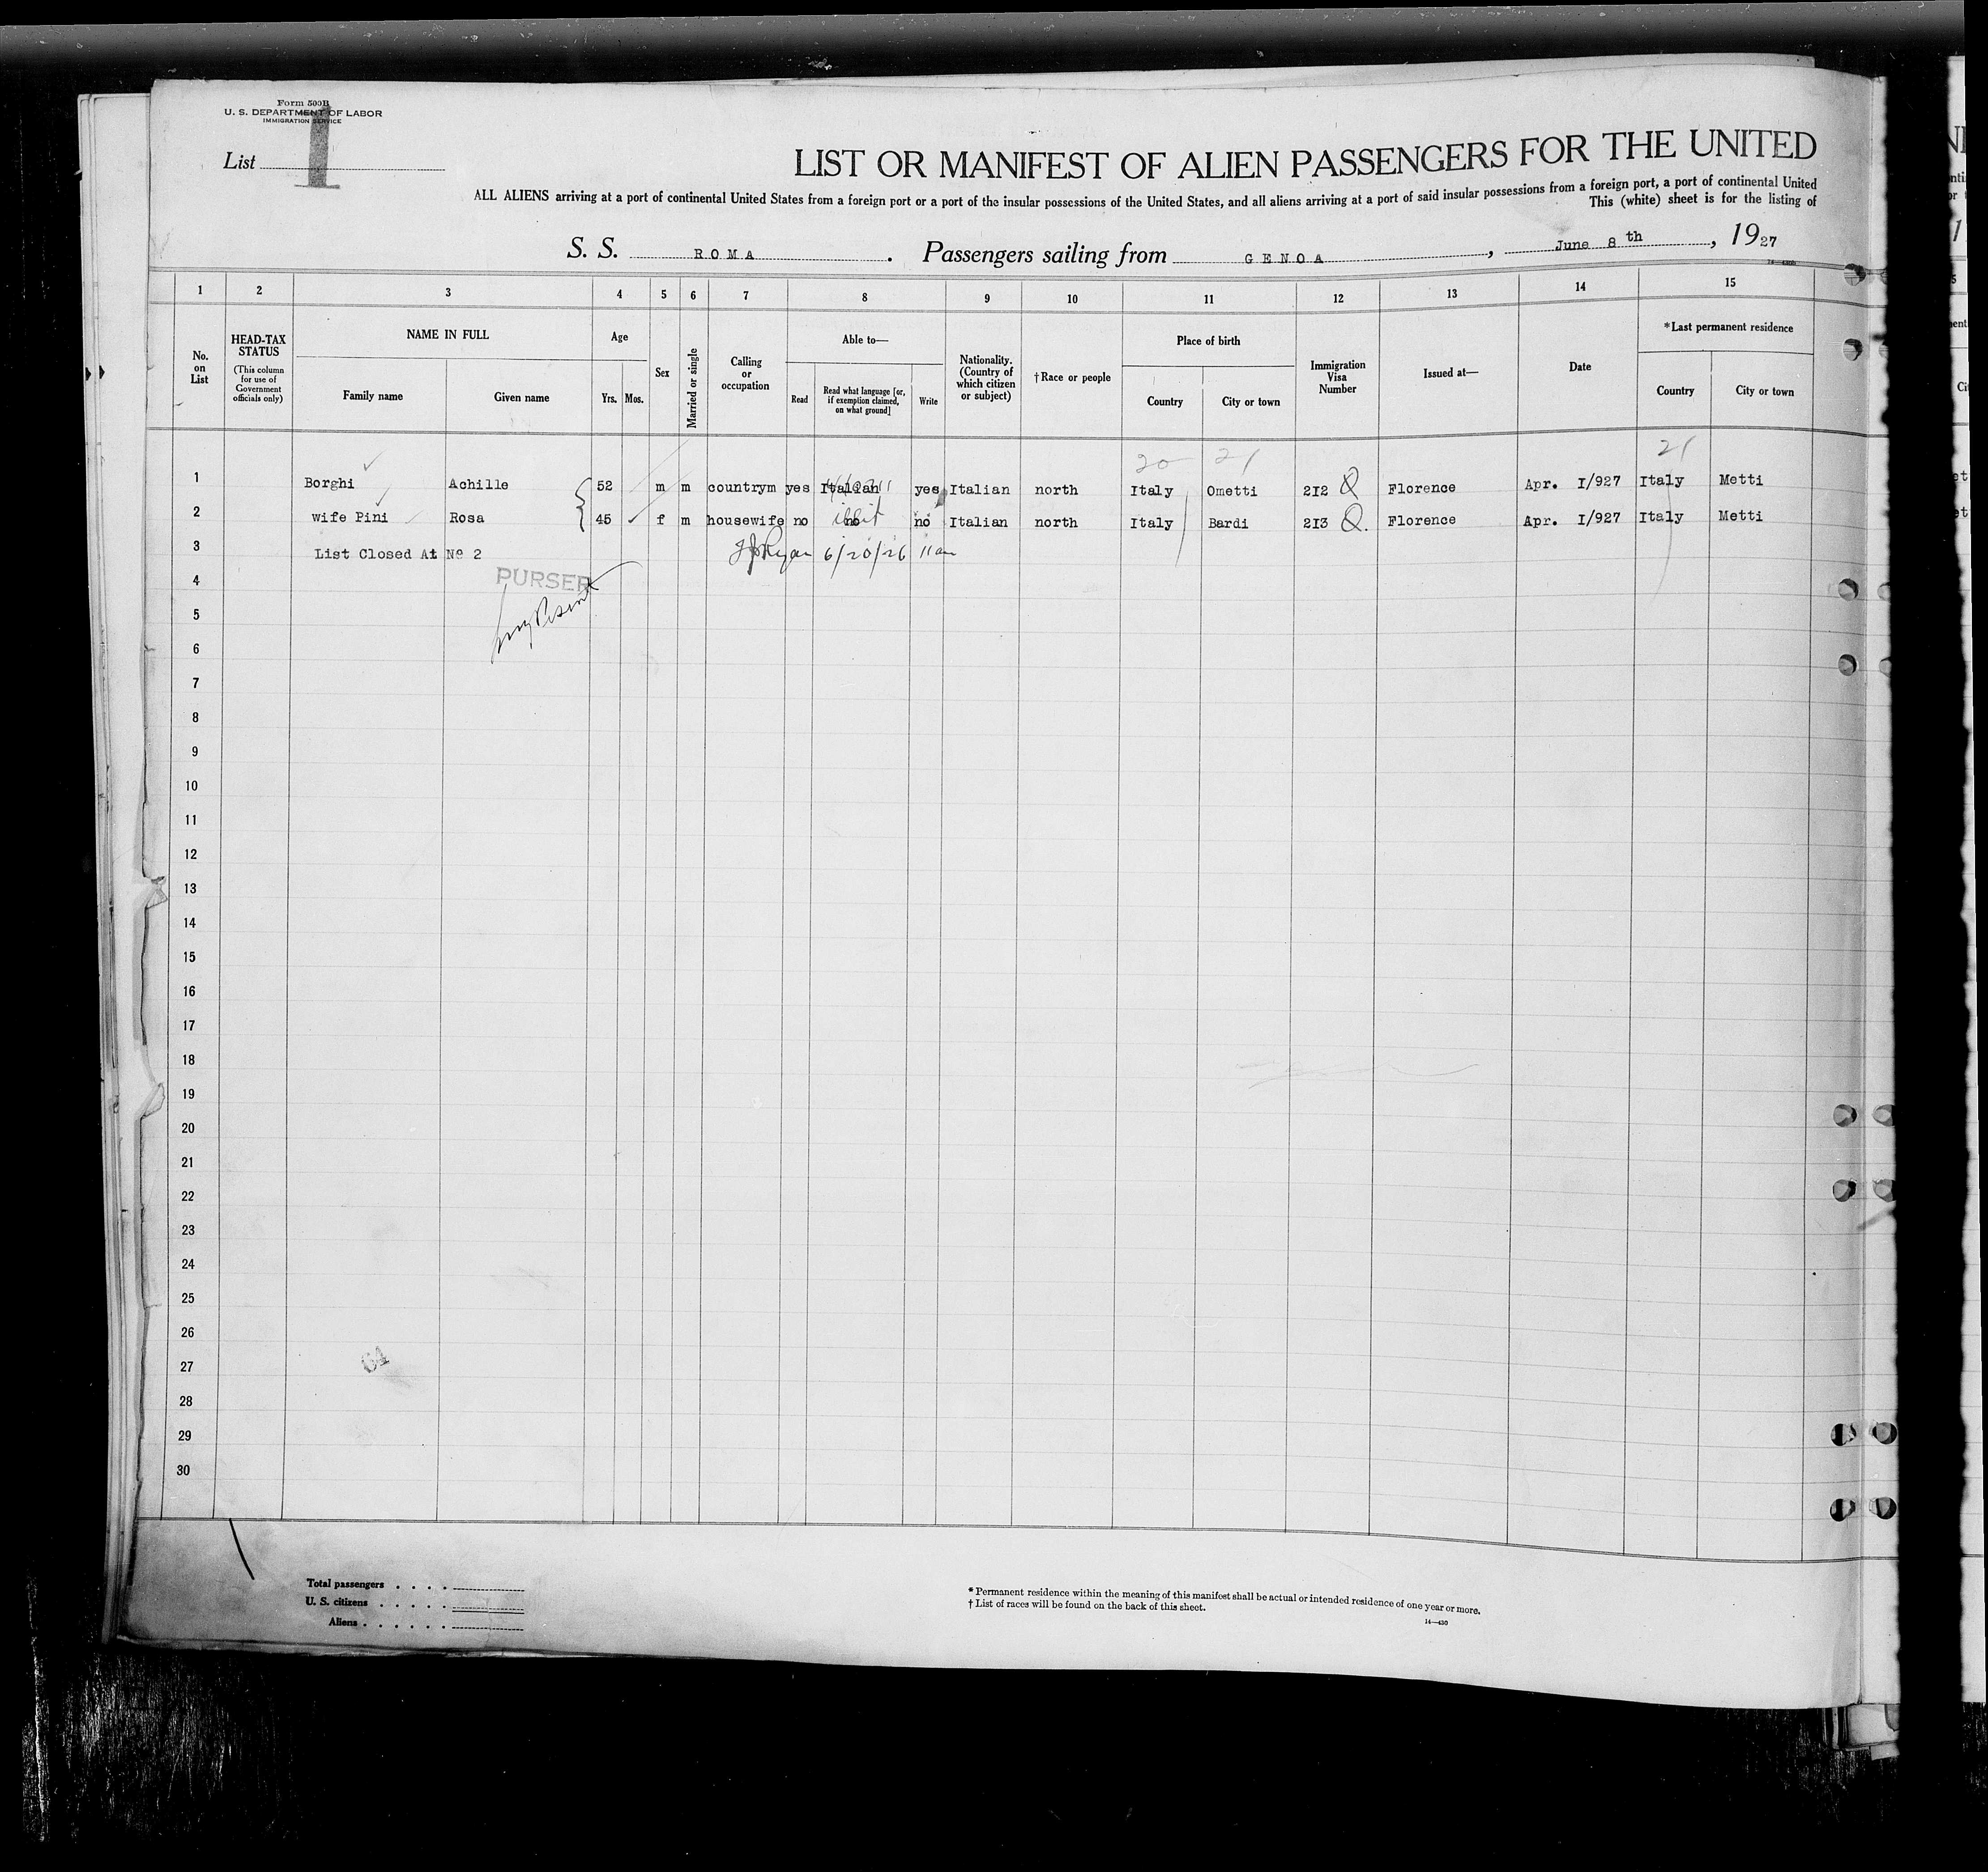 Form 500B
U. S. DEPARTMENT OF LABOR
IMMIGRATION SERVICE
List 1
LIST OR MANIFEST OF ALIEN PASSENGERS FOR THE UNITED
ALL ALIENS arriving at a port of continental United States from a foreign port or a port of the insular possessions of the United States, and all aliens arriving at a port of said insular possessions from a foreign port, a port of continental United
This (white) sheet is for the listing of
S. S. ROMA. Passengers sailing from GENOA, June 8 th, 1927
1 2 3 4 5 6 7 8 9 10 11 12 13 14 15
No. on List
HEAD-TAX STATUS (This column for use of Government officials only)
NAME IN FULL
Family name Given name
Age
Yrs. Mos.
Sex
Married or single
Calling or occupation
Able to—
Read
Read what language [or, if exemption claimed, on what ground]
Write
Nationality. (Country of which citizen or subject)
†Race or people
Place of birth
Country City or town
Immigration Visa Number
Issued at—
Date
*Last permanent residence
Country City or town
20 21 21
1 Borghi Achille 52 m m countrym yes Italian yes Italian north Italy Ometti 212 Q Florence Apr. I/927 Italy Metti
2 wife Pini Rosa 45 f m housewife no no no Italian north Italy Bardi 213 Q. Florence Apr. I/927 Italy Metti
3 List Closed At No 2 Ryan 6/20/26 11 am
4 PURSER
5
6
7
8
9
10
11
12
13
14
15
16
17
18
19
20
21
22
23
24
25
26
27 64
28
29
30
Total passengers . . . .
U. S. citizens . . . . .
Aliens . . . . . .
* Permanent residence within the meaning of this manifest shall be actual or intended residence of one year or more.
† List of races will be found on the back of this sheet.
14—430